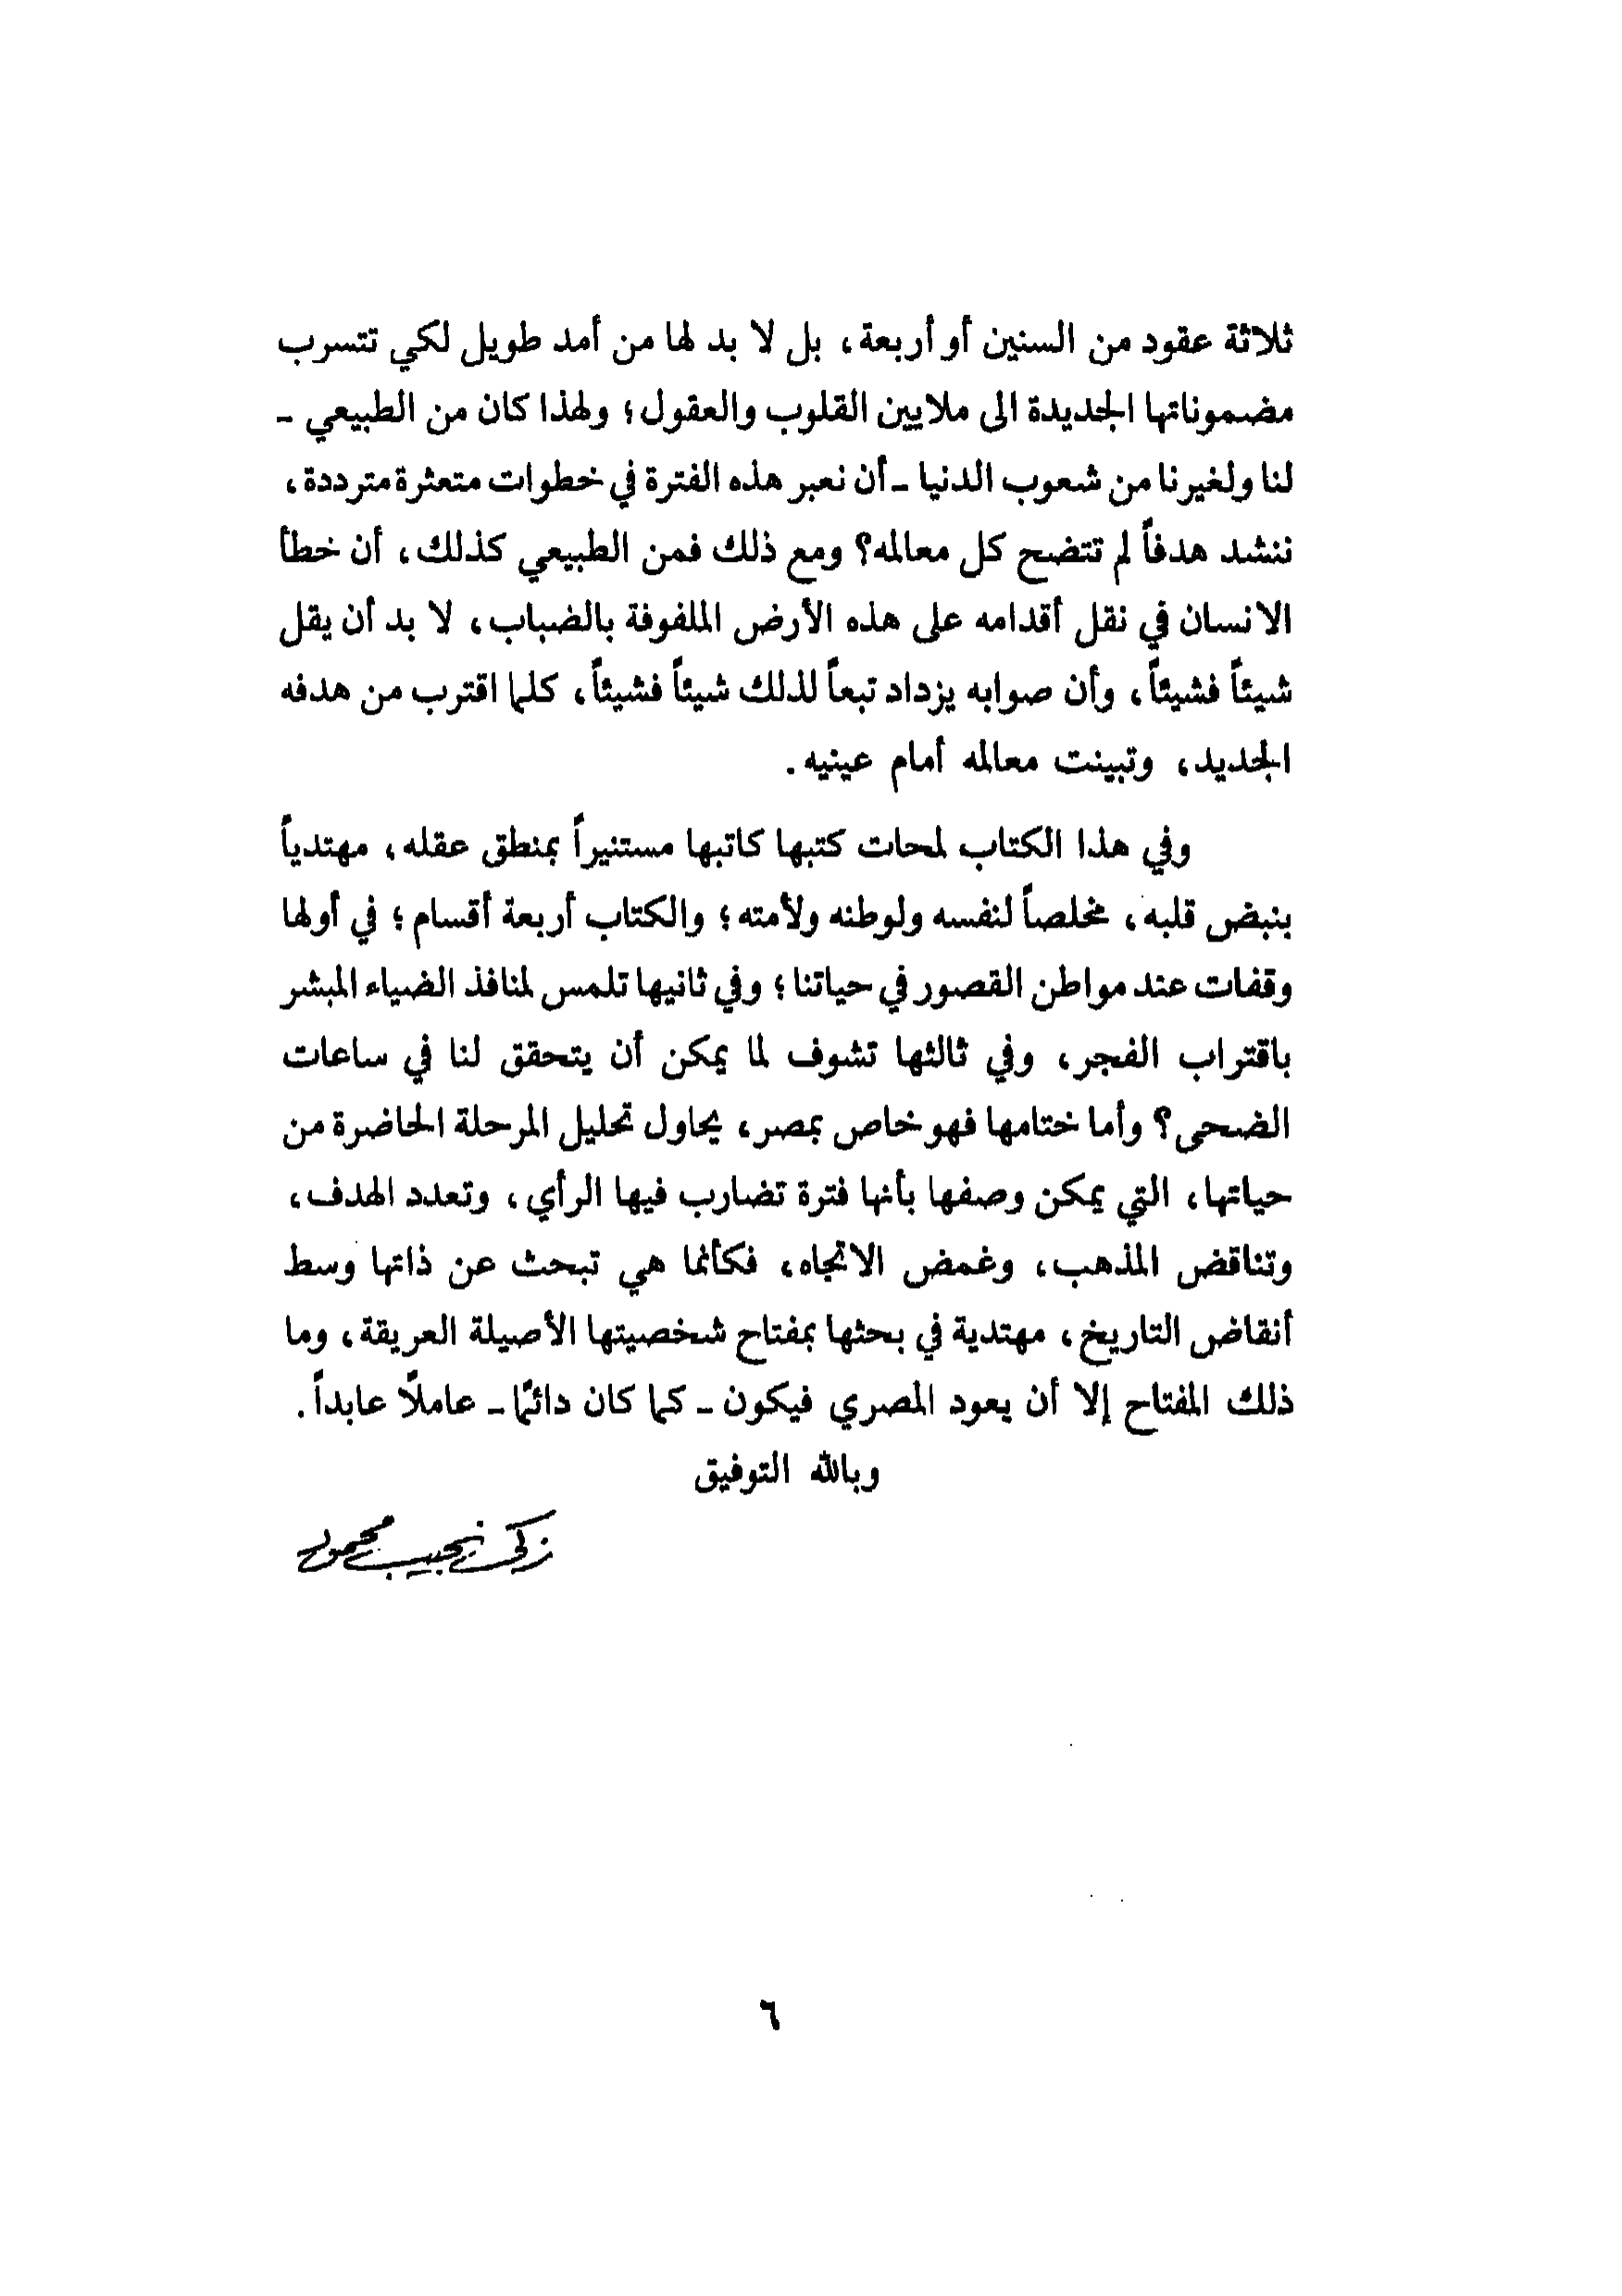 ثلاثة عقود من السنين أو أربعة، بل لا بد لها من أمد طويل لكي تتسرب
مضموناتها الجديدة الى ملايين القلوب والعقول؛ ولهذا كان من الطبيعي ـ
لنا ولغيرنا من شعوب الدنيا ـ أن نعبر هذه الفترة في خطوات متعثرة مترددة،
ننشد هدفاً لم تتضح كل معالمه؟ ومع ذلك فمن الطبيعي كذلك، أن خطأ
الانسان في نقل أقدامه على هذه الأرض الملفوفة بالضباب، لا بد أن يقل
شيئاً فشيئاً، وأن صوابه يزداد تبعاً لذلك شيئاً فشيئاً، كلما اقترب من هدفه
الجديد، وتبينت معالمه أمام عينيه.
وفي هذا الكتاب لمحات كتبها كاتبها مستنيراً بمنطق عقله، مهتدياً
بنبض قلبه، مخلصاً لنفسه ولوطنه ولأمته؛ والكتاب أربعة أقسام؛ في أولها
وقفات عند مواطن القصور في حياتنا؛ وفي ثانيها تلمس لمنافذ الضياء المبشر
باقتراب الفجر، وفي ثالثها تشوف لما يمكن أن يتحقق لنا في ساعات
الضحى؟ وأما ختامها فهو خاص بمصر، يحاول تحليل المرحلة الحاضرة من
حياتها، التي يمكن وصفها بأنها فترة تضارب فيها الرأي، وتعدد الهدف،
وتناقض المذهب، وغمض الاتجاه، فكأنما هي تبحث عن ذاتها وسط
أنقاض التاريخ، مهتدية في بحثها بمفتاح شخصيتها الأصيلة العريقة، وما
ذلك المفتاح إلا أن يعود المصري فيكون ـ كما كان دائمًا ـ عاملًا عابداً.
وبالله التوفيق
زكي نجيب محمود
٦